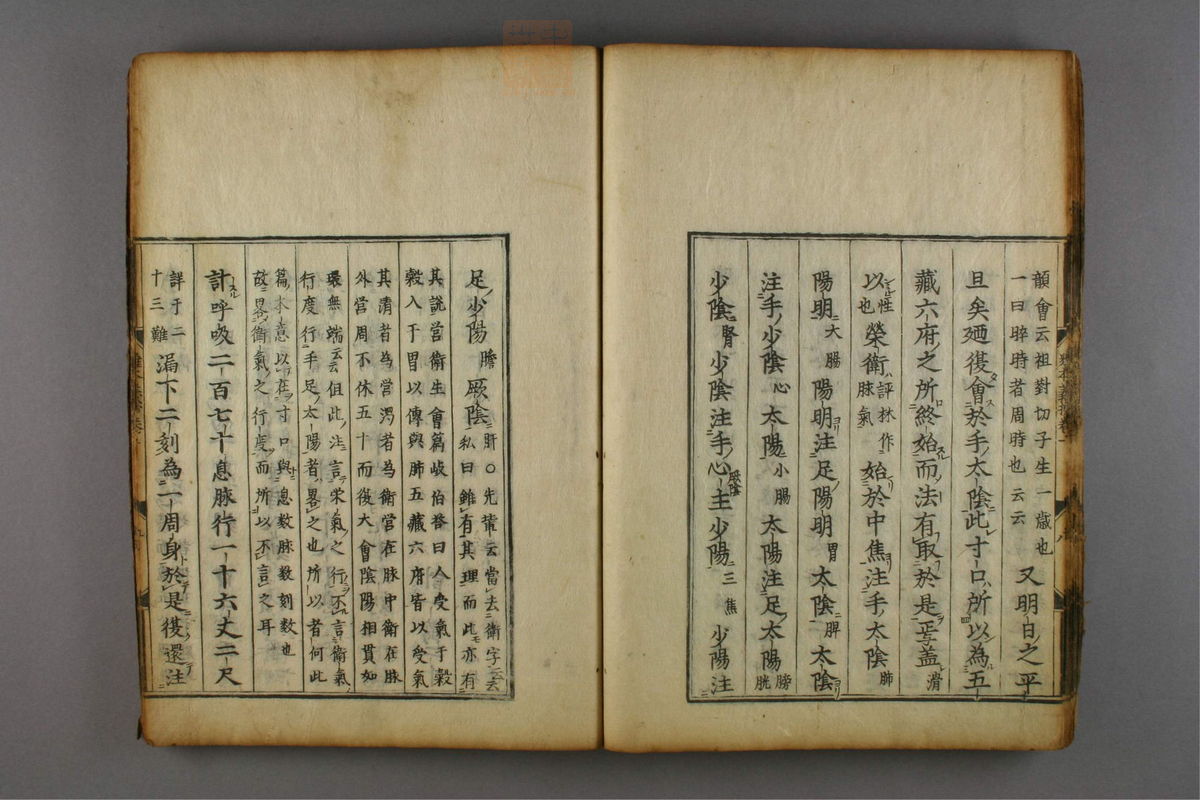 韻會云祖對切子生一歳也
一曰晬時者周時也云云
又明日之平
旦矣廼復會於手太陰此寸口所以為五
藏六府之所終始而法有取於是焉盖
以性也榮衛評林作脉氣始於中焦注手太陰肺
陽明大腸陽明注足陽明胃太陰脾太陰
注手少陰心太陽小腸太陽注足太陽膀胱
少陰腎少陰注手心主厥陰少陽三焦少陽注
足少陽膽厥陰肝○先輩云當去衛字云云
私曰雖有其理而此亦有
其説営衛生會篇岐伯荅曰人受氣于穀
穀入于胃以傳與肺五藏六府皆以受氣
其清者為営濁者為衛営在脉中衛在脉
外営周不休五十而復大會陰陽相貫如
環無端云云但此注言宋氣之行不言衛氣
行度行手足太陽者畧之也所以者何此
篇本意以在寸口與息数脉数刻数也
故畧衛氣之行度而所以不言之耳
計呼吸二百七十息脉行一十六丈二尺
詳于二十三難漏下二刻為一周身於是復還注